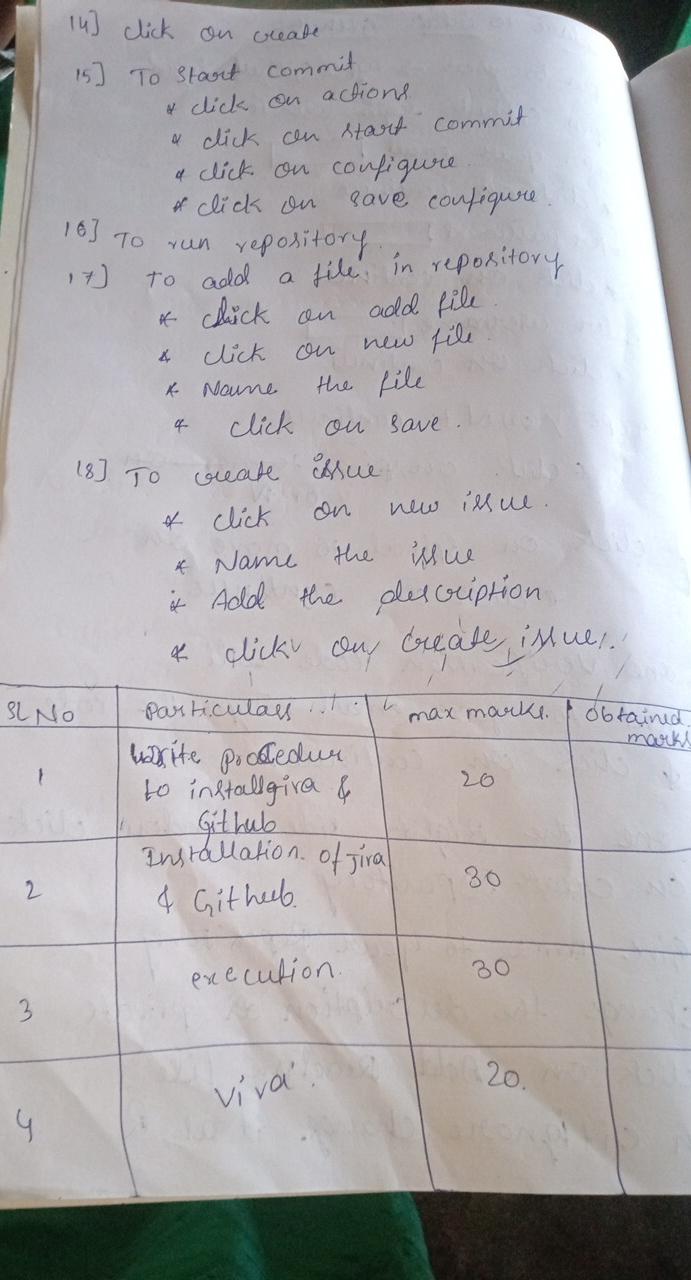 14] click on create
15] To start commit
* click on actions
* click on start commit
* click on configure
* click on save configure.
16] To run repository.
17] To add a file in repository
* click on add file.
* click on new file.
* Name the file
* click on save.
18] To create issue
* click on new issue.
* Name the issue
* Add the description
* click on create issue.
SL No Particulars max marks. obtained marks
1 write procedur to install gira & Github 20
2 Installation of Jira & Github. 30
3 execution. 30
4 Viva. 20.